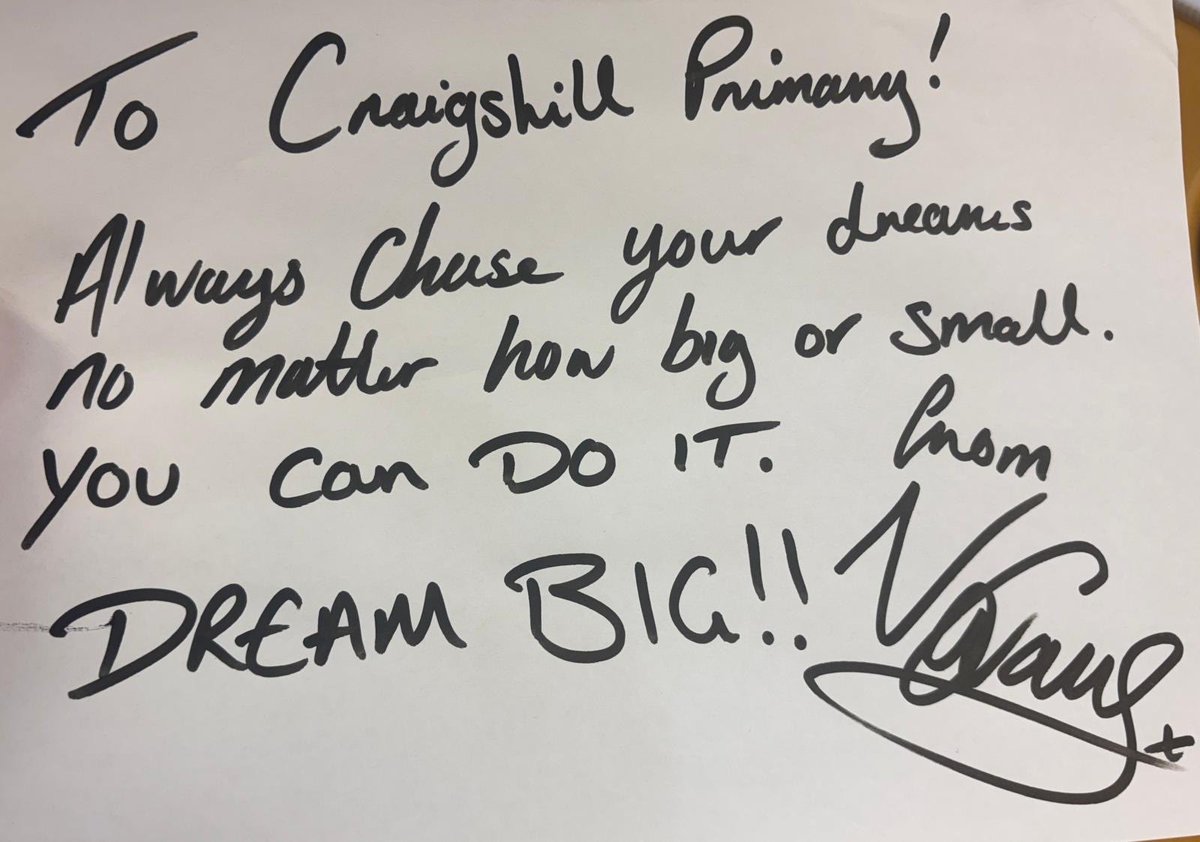 To Craigshill Primary!
Always Chase your dreams
no matter how big or small.
you can DO IT. from
DREAM BIG!!